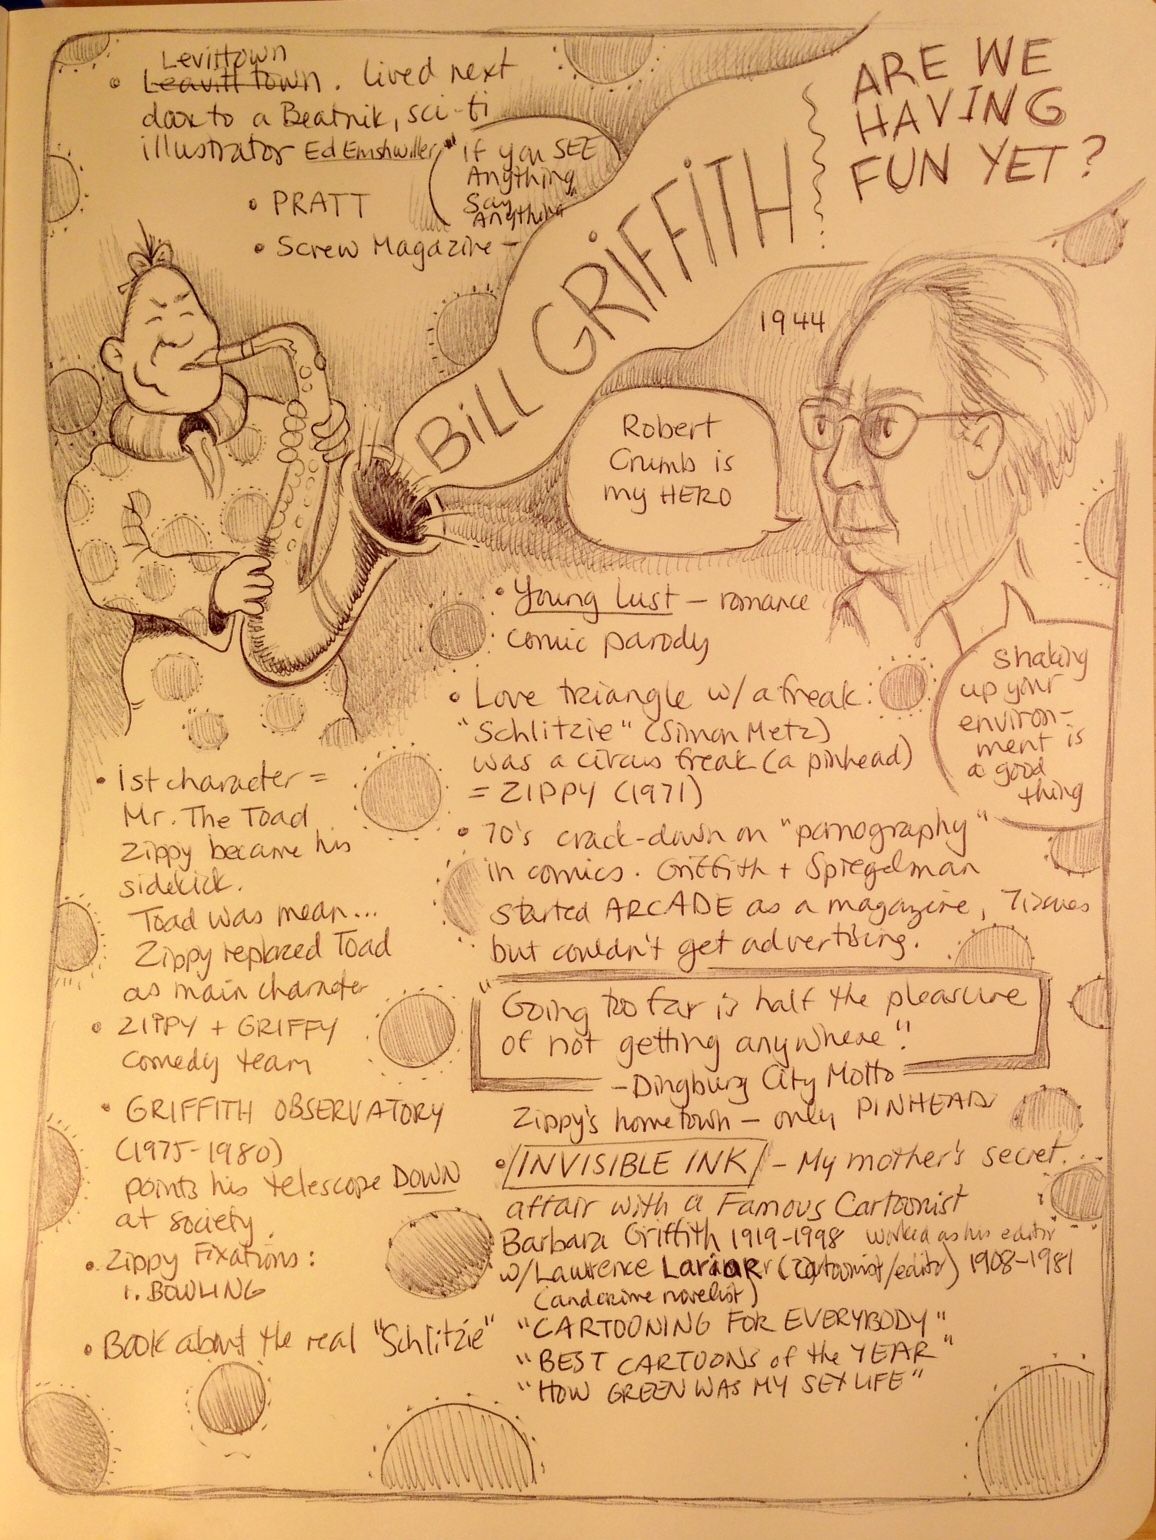 Levittown
Leavitt town. lived next
door to a Beatnik, sci-fi
illustrator Ed Emshwiller
"if you SEE
Anything
Say
Anything"
• PRATT
• Screw Magazine –
ARE WE
HAVING
FUN YET?
BILL GRIFFITH
1944
Robert
Crumb is
my HERO
• Young Lust – romance
comic parody
shaking
up your
environ-
ment is
a good
thing
• Love triangle w/ a freak.
"Schlitzie" (Simon Metz)
was a circus freak (a pinhead)
= ZIPPY (1971)
• 70's crack-down on "pornography"
in comics. Griffith + Spiegelman
started ARCADE as a magazine, 7 issues
but couldn't get advertising.
"Going too far is half the pleasure
of not getting anywhere".
– Dingburg City Motto
Zippy's hometown – only PINHEADS
• INVISIBLE INK – My mother's secret
affair with a Famous Cartoonist
Barbara Griffith 1919-1998 worked as his editor
w/ Lawrence Lariar (cartoonist/editor) 1908-1981
(and crime novelist)
"CARTOONING FOR EVERYBODY"
"BEST CARTOONS of the YEAR"
"HOW GREEN WAS MY SEX LIFE"
• 1st character =
Mr. The Toad
Zippy became his
sidekick.
Toad was mean...
Zippy replaced Toad
as main character
• ZIPPY + GRIFFY
comedy team
• GRIFFITH OBSERVATORY
(1975-1980)
points his telescope DOWN
at society.
• Zippy Fixations:
1. BOWLING
• Book about the real "Schlitzie"